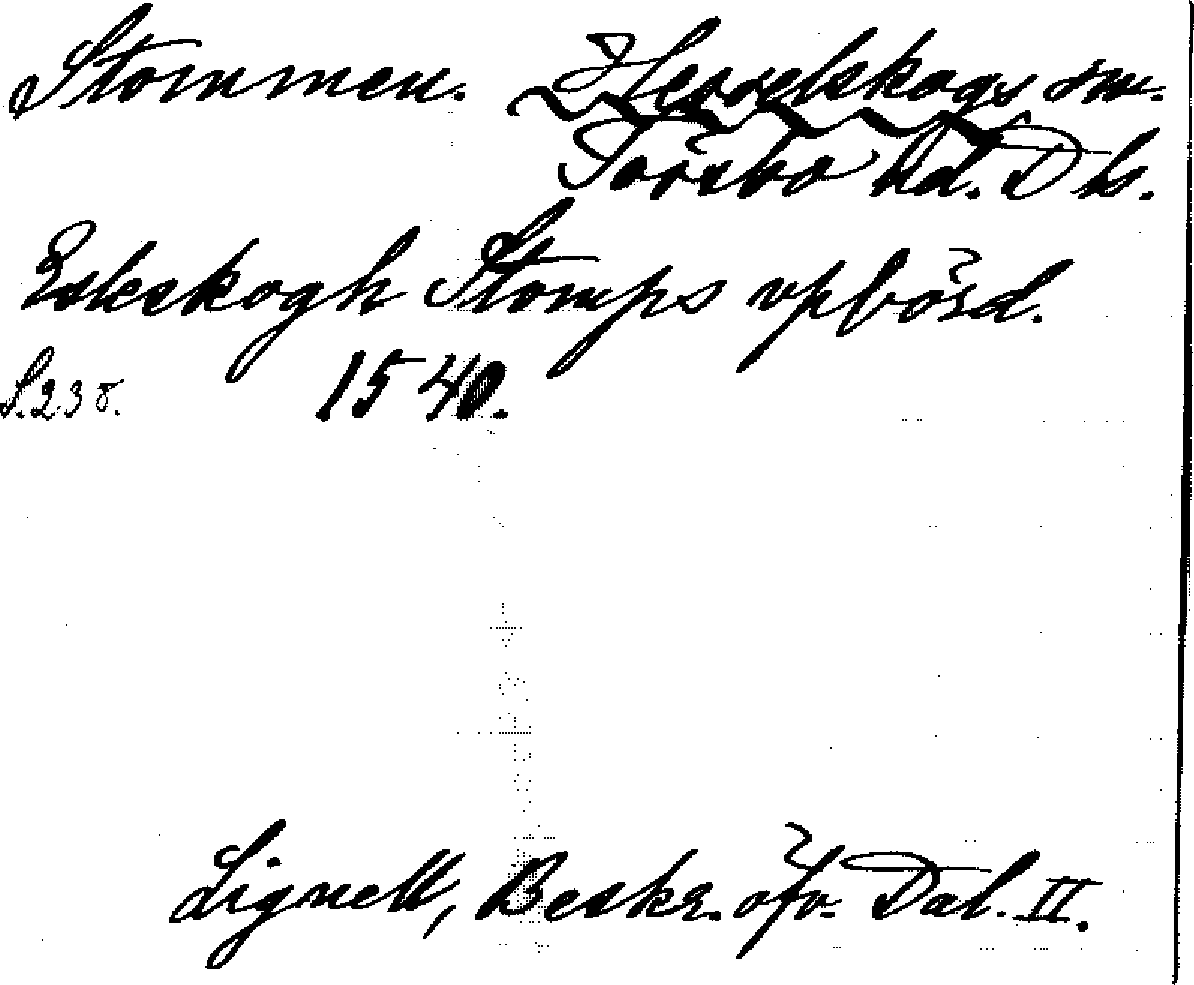 Stommen. Hesselskogs sn.
Tössbo hd. Dls.
Esleskogh Stomps vpbörd.
S. 238. 1540.
Lignell, Beskr. öfv. Dal. II.